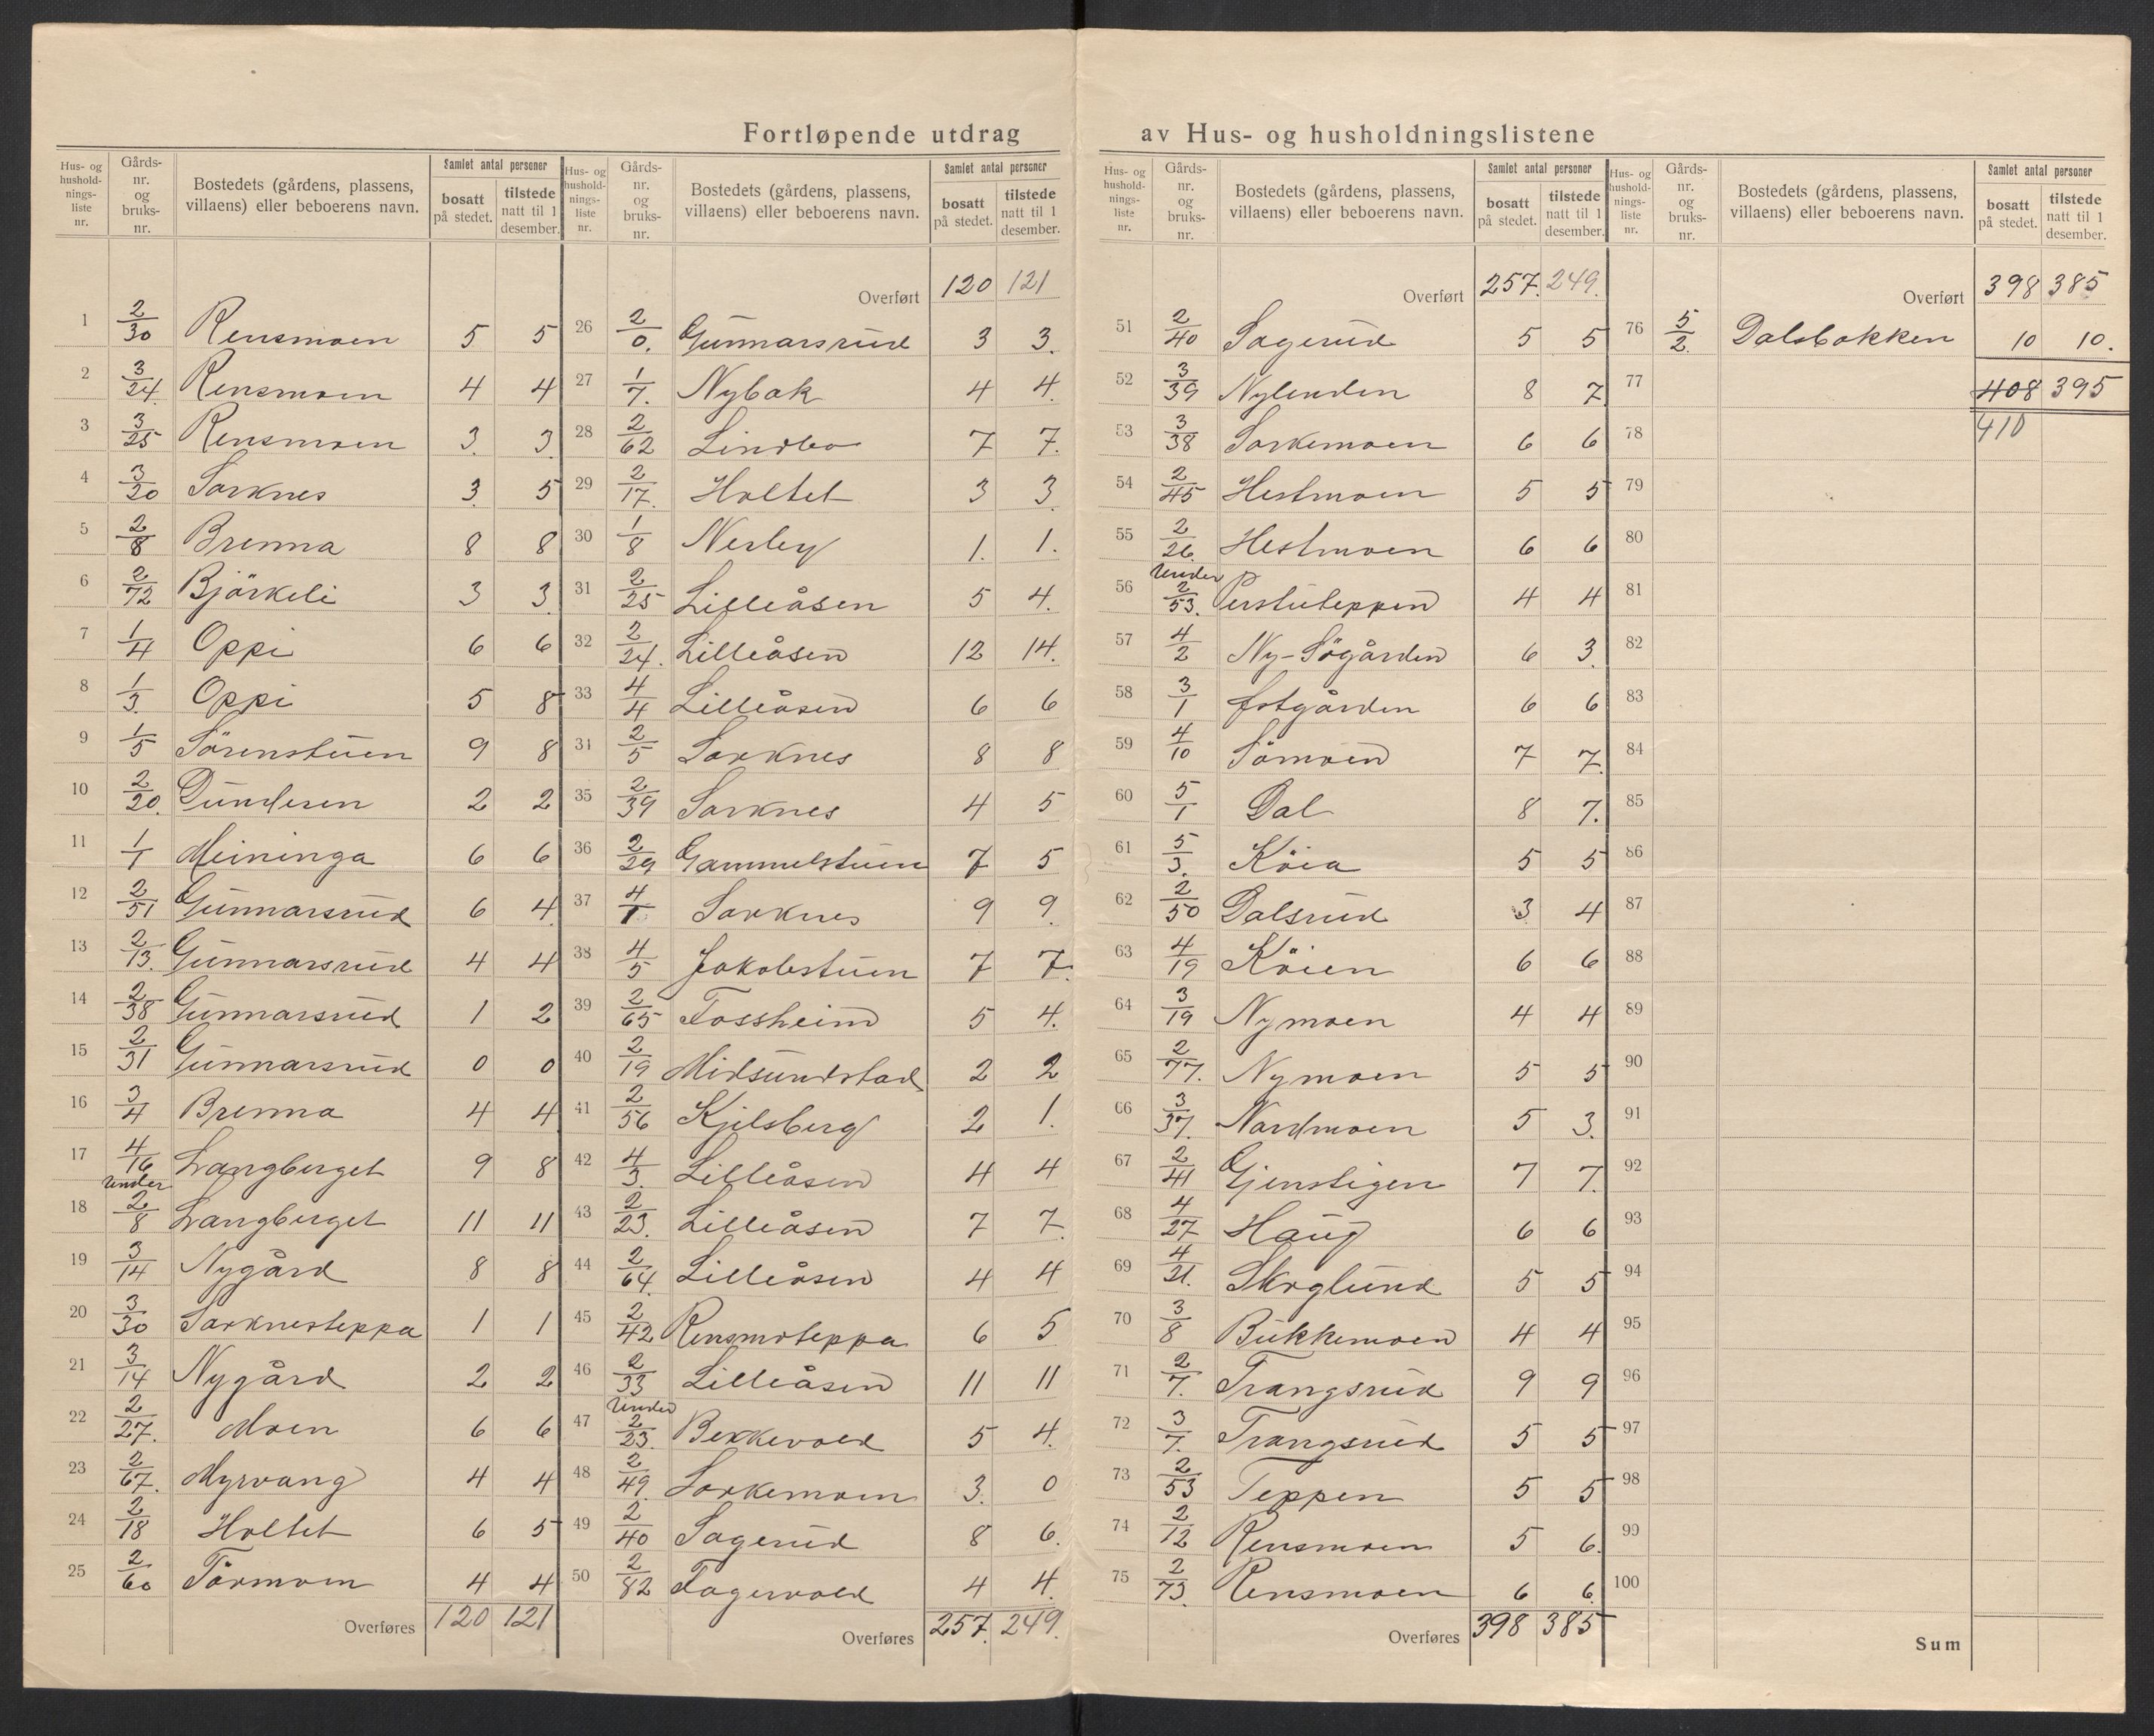 Fortløpende utdrag av Hus- og husholdningslistene
Hus- og hushold-nings-liste nr. Gårds-nr. og bruks-nr. Bostedets (gårdens, plassens, villaens) eller beboerens navn. Samlet antal personer bosatt på stedet. tilstede natt til 1 desember.
1 2/30 Rensmoen 5 5
2 3/24. Rensmoen 4 4
3 3/25 Rensmoen 3. 3.
4 3/20 Sorknes 3. 5
5 2/8 Brenna 8 8
6 2/72 Björkeli 3 3.
7 1/4 Oppi 6 6
8 1/3. Oppi 5 8
9 1/5 Sörenstuen 9 8
10 2/20. Dunderen 2 2
11 1/1 Meininga 6 6
12 2/51 Gunnarsrud 6 4.
13 2/13. Gunnarsrud 4 4
14 2/38 Gunnarsrud 1 2
15 2/31 Gunnarsrud 0 0
16 3/4 Brenna 4 4
17 4/16 Langberget 9 8
18 Under 2/8 Langberget 11 11
19 3/14 Nygård 8 8
20 3/30 Sorknesteppa 1 1
21 3/14 Nygård 2 2
22 2/27. Moen 6 6
23 2/67. Myrvang 4 4
24 2/18 Holtet 6 5
25 2/60 Törmoen 4 4
Overføres 120 121
Hus- og hushold-nings-liste nr. Gårds-nr. og bruks-nr. Bostedets (gårdens, plassens, villaens) eller beboerens navn. Samlet antal personer bosatt på stedet. tilstede natt til 1 desember.
Overført 120 121
26 2/0. Gunnarsrud 3 3.
27 1/7. Nybak 4 4.
28 2/62 Lindbo 7 7.
29 2/17. Holtet 3 3.
30 1/8 Nerby 1. 1.
31 2/25 Lilleåsen 5 4.
32 2/24. Lilleåsen 12 14.
33 4/4 Lilleåsen 6 6
34 2/5 Sorknes 8 8
35 2/39 Sorknes 4 5
36 2/29 Gammelstuen 7 5
37 4/1 Sorknes 9 9.
38 4/5 Jakobstuen 7 7.
39 2/65 Fossheim 5 4.
40 2/19 Midsundstad 2 2
41 2/56 Kjelsberg 2 1.
42 4/3. Lilleåsen 4 4
43 2/23. Lilleåsen 7 7.
44 2/64. Lilleåsen 4 4
45 2/42 Rensmoteppa 6 5
46 2/33 Lilleåsen 11 11
47 Under 2/23. Bekkevold 5 4.
48 2/49. Sorkemoen 3. 0
49 2/40 Sagerud 8 6.
50 2/82 Fagervold 4 4.
Overføres 257. 249.
Hus- og hushold-nings-liste nr. Gårds-nr. og bruks-nr. Bostedets (gårdens, plassens, villaens) eller beboerens navn. Samlet antal personer bosatt på stedet. tilstede natt til 1 desember.
Overført 257. 249.
51 2/40 Sagerud 5 5
52 3/39 Nylenden 8 7
53 3/38 Sorkemoen 6 6
54 2/45 Hestmoen 5 5
55 2/26. Hestmoen 6 6
56 Under 2/53. Perstuteppen 4 4
57 4/2 Ny-Sögården 6 3.
58 3/1 Østgården 6 6
59 4/10 Sömoen 7 7.
60 5/1 Dal 8 7.
61 5/3. Köia 5 5
62 2/50 Dalsrud 3 4
63 4/19 Köien 6 6
64 3/19 Nymoen 4 4
65 2/77. Nymoen 5 5
66 3/37. Nordmoen 5 3.
67 2/41 Gjenstigen 7 7.
68 4/27 Haug 6 6
69 4/21. Skoglund 5 5
70 3/8 Bukkemoen 4 4
71 2/7. Trangsrud 9 9
72 3/7. Trangsrud 5 5
73 2/53 Teppen 5 5
74 2/12 Rensmoen 5 6.
75 2/73. Rensmoen 6 6.
Overføres 398 385
Hus- og hushold-nings-liste nr. Gårds-nr. og bruks-nr. Bostedets (gårdens, plassens, villaens) eller beboerens navn. Samlet antal personer bosatt på stedet. tilstede natt til 1 desember.
Overført 398 385
76 5/2. Dalsbakken 10 10.
77 408 395
78 410
79
80
81
82
83
84
85
86
87
88
89
90
91
92
93
94
95
96
97
98
99
100
Sum